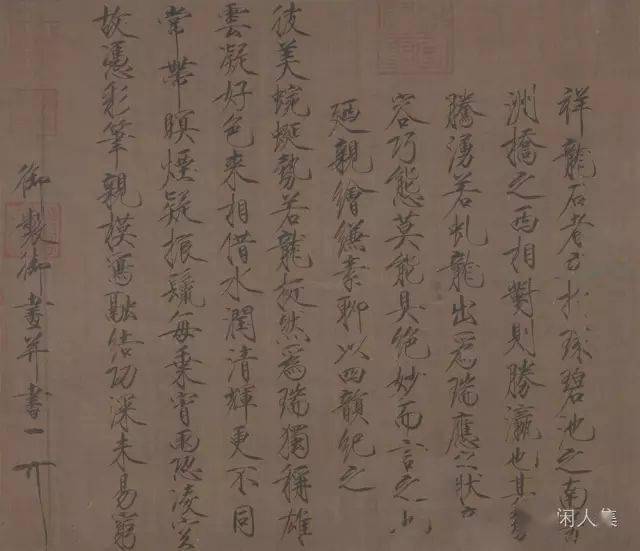 祥龍石者立於環碧池之南芳
洲橋之西相對則勝瀛也其勢
騰湧若虬龍出為瑞應之狀奇
容巧態莫能具絕妙而言之也
廼親繪縑素聊以四韻紀之
彼美蜿蜒勢若龍挺然為瑞獨稱雄
雲凝好色來相借水潤清輝更不同
常帶暝煙疑振鬣每乘宵雨恐凌空
故憑彩筆親模寫融結功深未易窮
御製御畫并書
闲人集